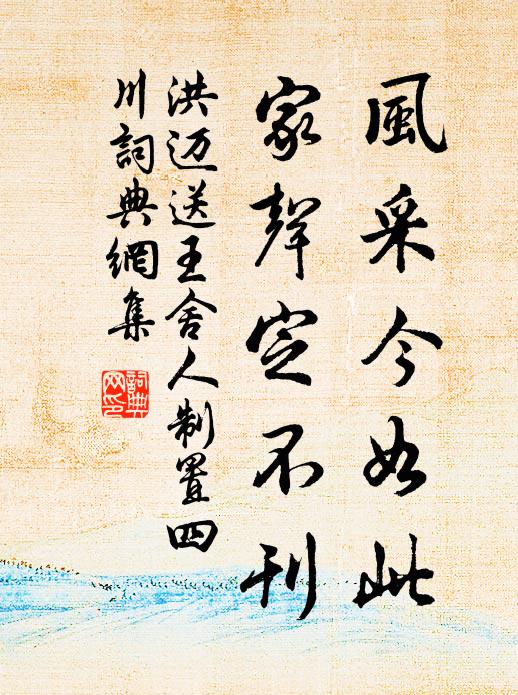 風采今如此
家聲定不刊
洪迈送王舍人制置四
川詞典網集
詞典
网印